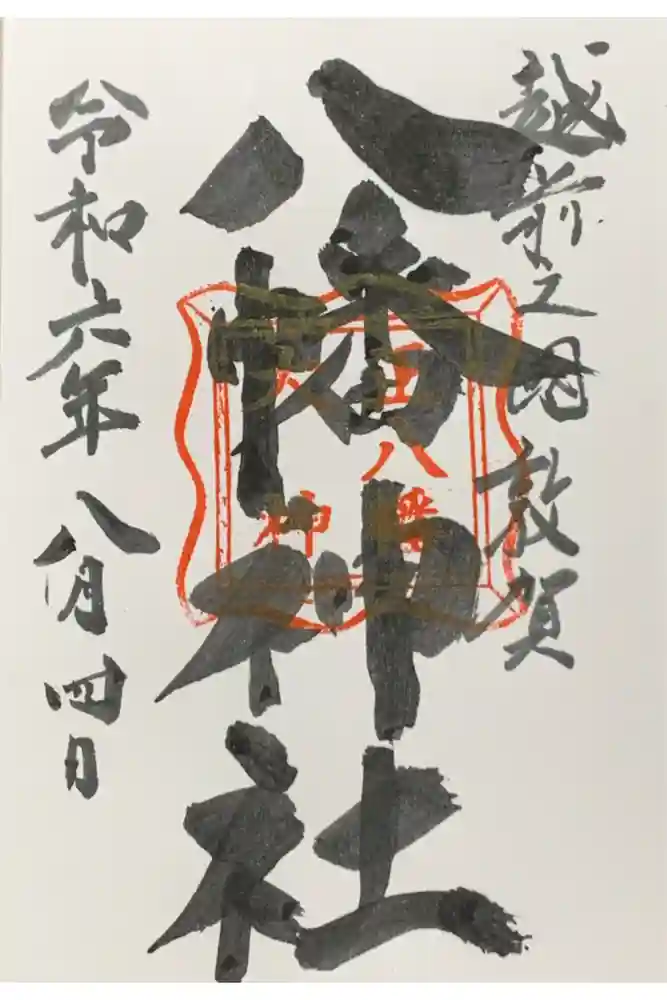 越前之国敦賀
八幡神社
八幡
神
令和六年八月四日